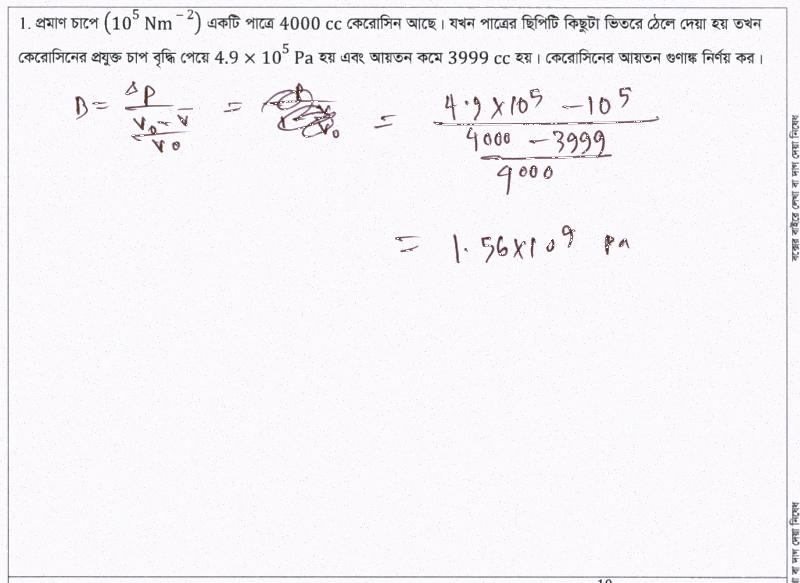 1. প্রমাণ চাপে (10⁵ Nm⁻²) একটি পাত্রে 4000 cc কেরোসিন আছে। যখন পাত্রের ছিপিটি কিছুটা ভিতরে ঠেলে দেয়া হয় তখন
কেরোসিনের প্রযুক্ত চাপ বৃদ্ধি পেয়ে 4.9 × 10⁵ Pa হয় এবং আয়তন কমে 3999 cc হয়। কেরোসিনের আয়তন গুণাঙ্ক নির্ণয় কর।
B = ΔP / ((V₀ - V) / V₀) = = (4.9×10⁵ - 10⁵) / ((4000 - 3999) / 4000)
= 1.56×10⁹ Pa
বক্সের বাইরে লেখা বা দাগ দেয়া নিষেধ
বা দাগ দেয়া নিষেধ